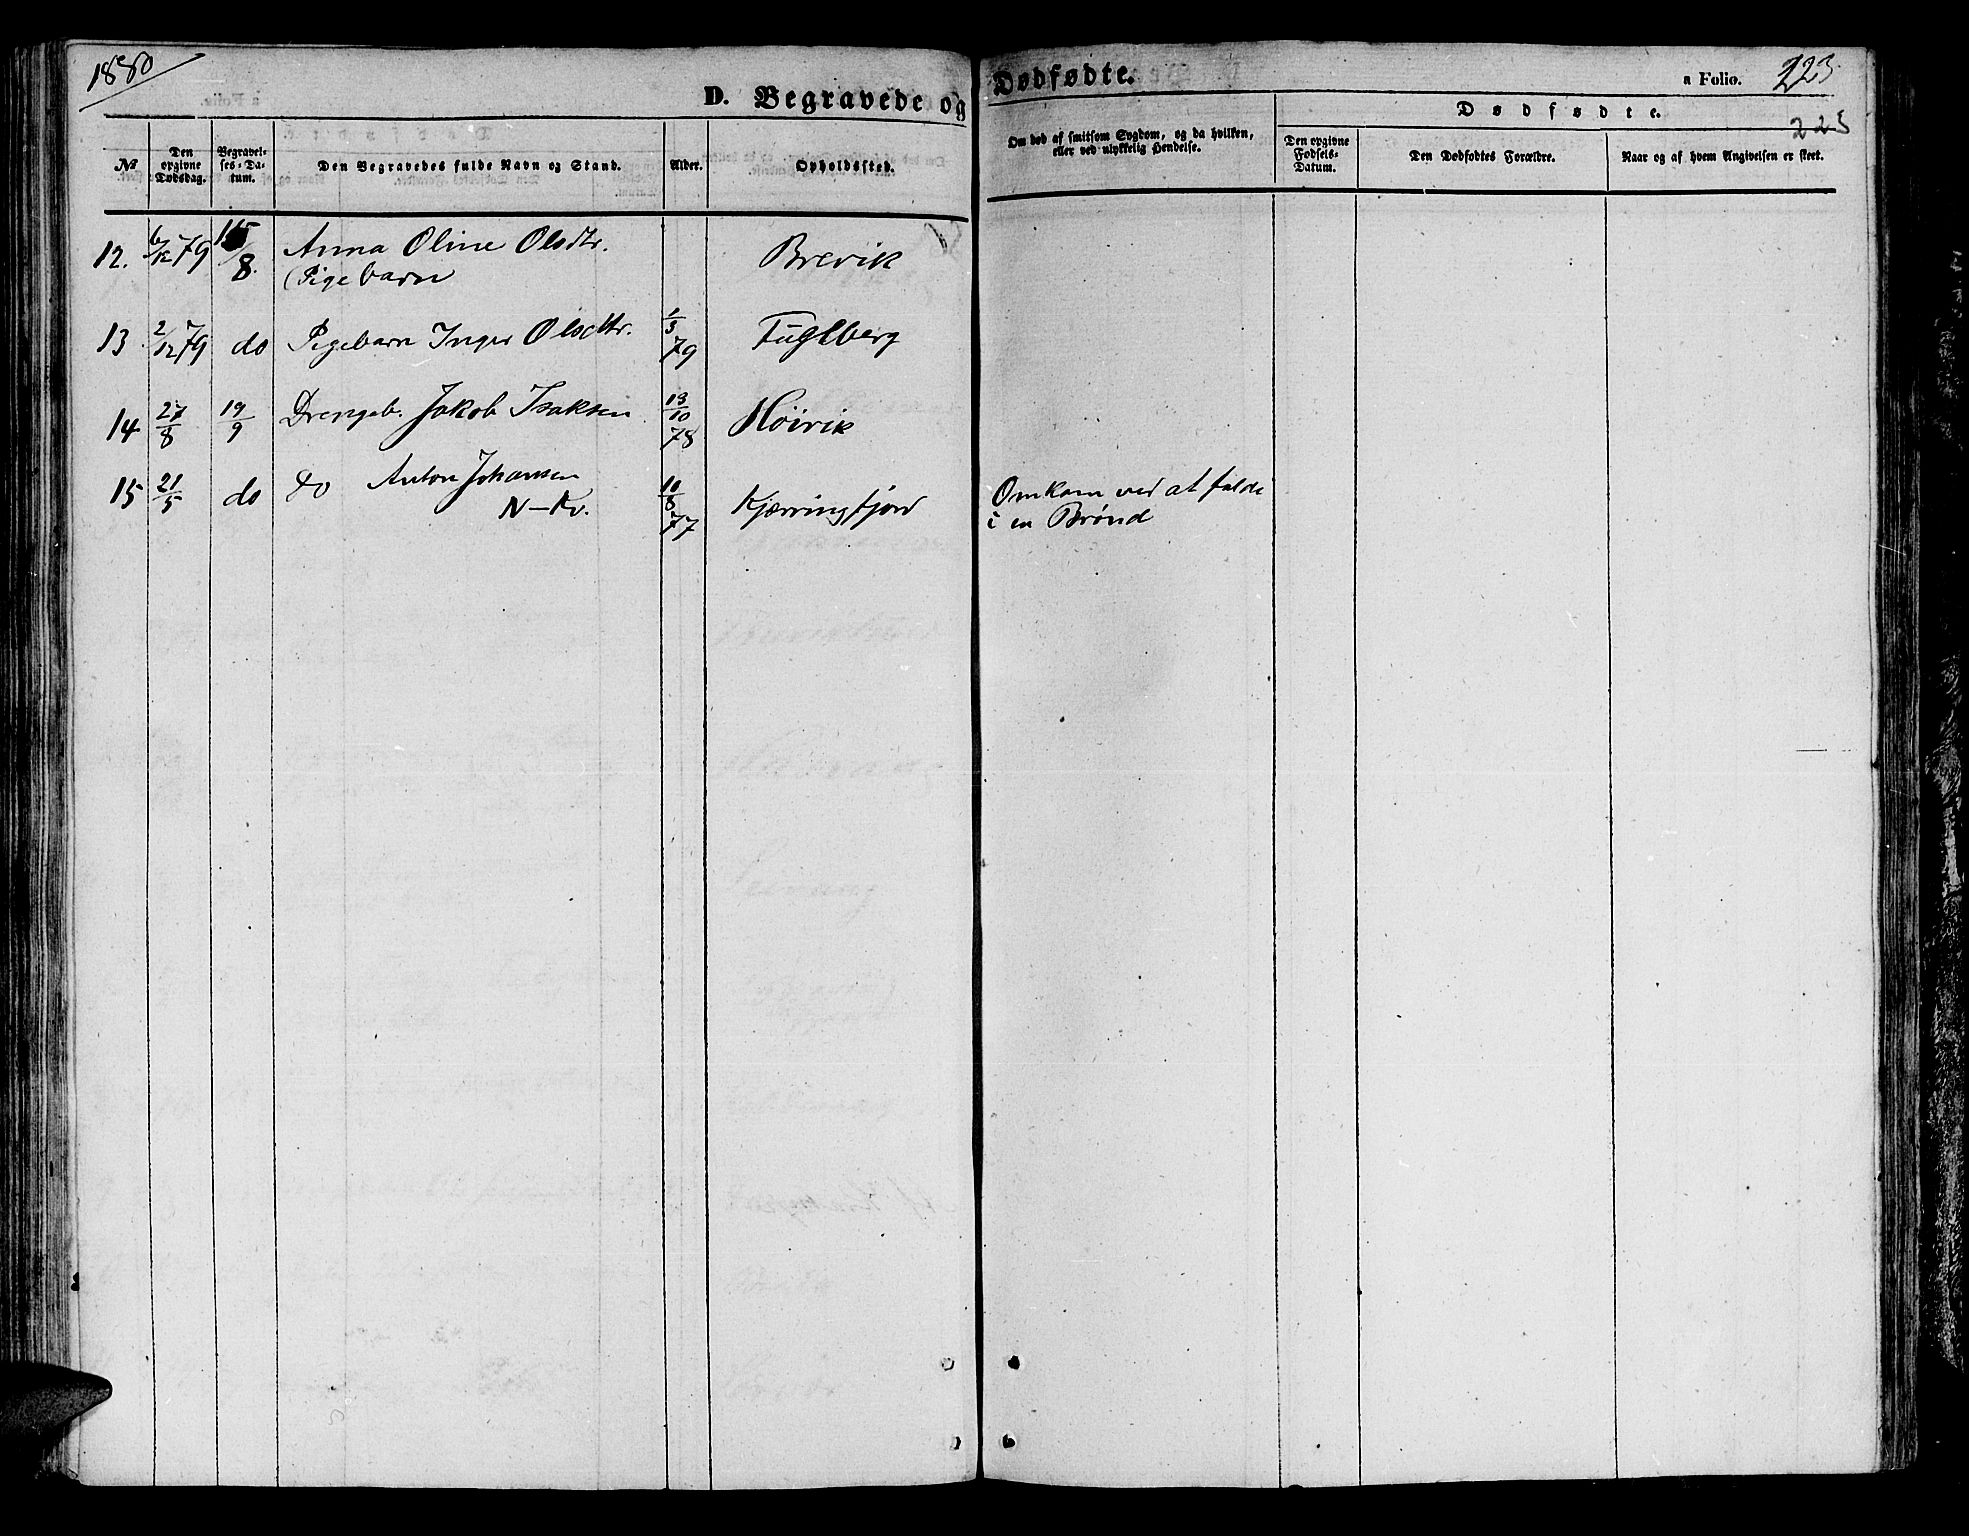 1880
D. Begravede og Dødfødte.
a Folio. 223.
225
Dødfødte.
№
Den opgivne Dødsdag.
Begravelses-Datum.
Den Begravedes fulde Navn og Stand.
Alder.
Opholdssted.
Om død af smitsom Sygdom, og da hvilken, eller ved ulykkelig Hendelse.
Den opgivne Fødsels-Datum.
Den Dødfødtes Forældre.
Naar og af hvem Angivelsen er skeet.
12. 6/12 79 15/8. Anna Oline Olsdtr. Brevik
(Pigebarn
13 2/12 79 do Pigebarn Inger Olsdtr. 1/3 79 Fuglberg
14 27/8 19/9 Drengeb. Jakob Isaksen 13/10 78 Høivik
15 21/5 do do Anton Johansen 10/8 77 Kjærringfjord Omkom ved at falde
N-Kv. i en Brønd